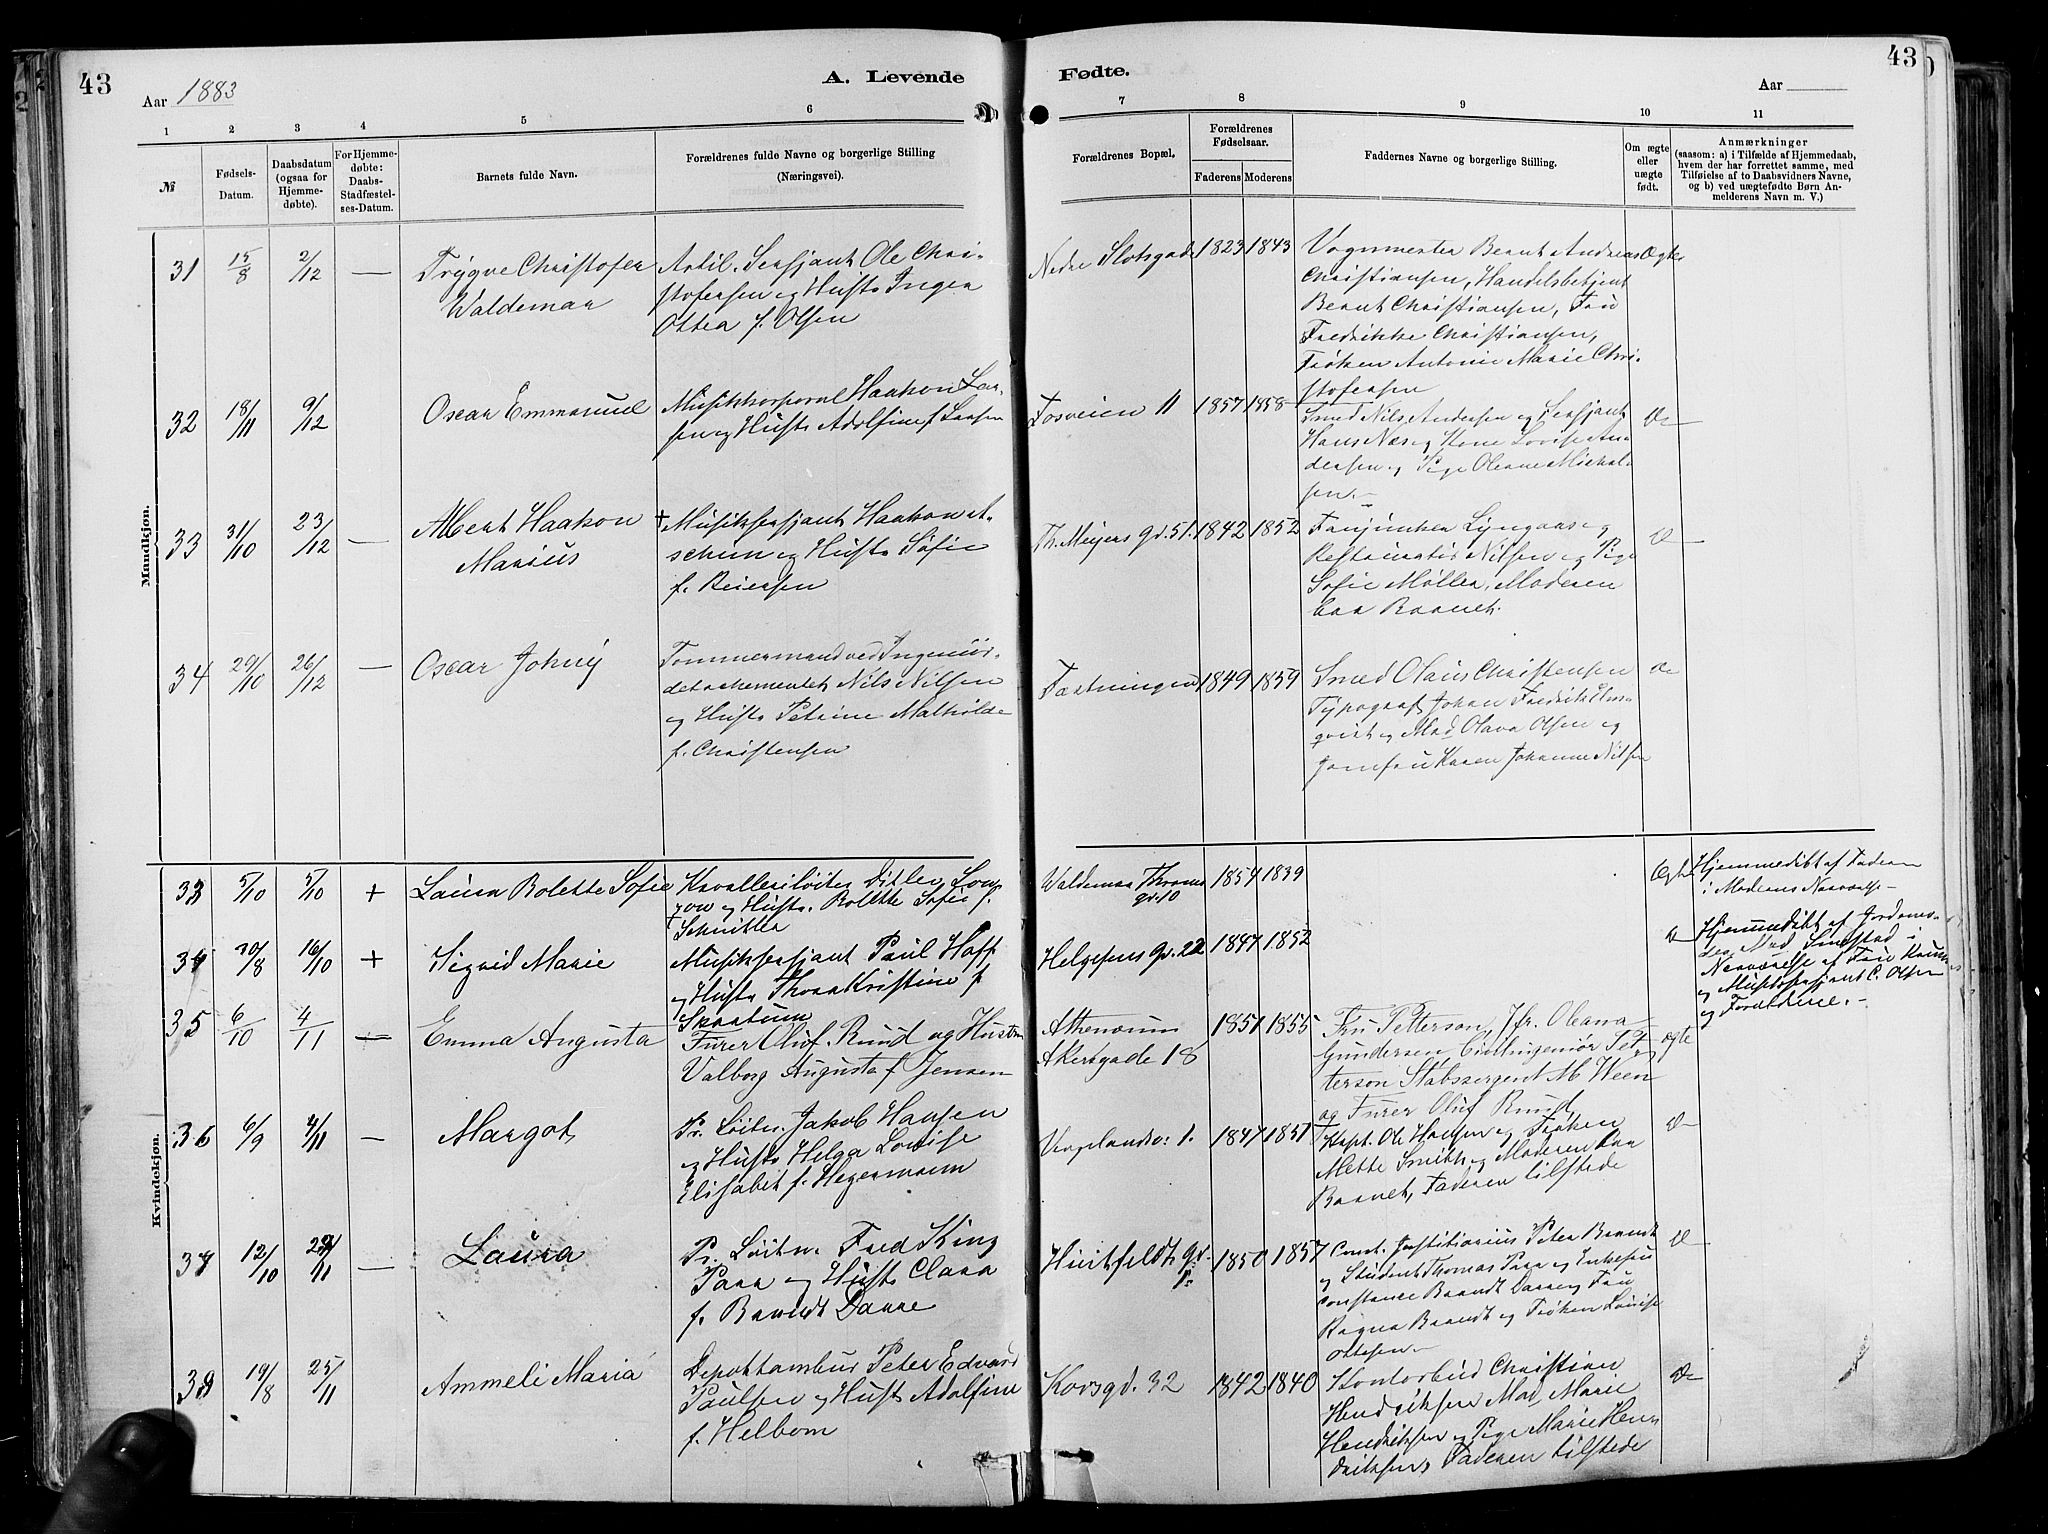 43
Aar 1883
A. Levende
Fødte.
Aar
43
1 2 3 4 5 6 7 8 9 10 11
№
Fødsels-
Datum.
Daabsdatum
(ogsaa for
Hjemme-
døbte).
For Hjemme-
døbte:
Daabs-
Stadfæstel-
ses-Datum.
Barnets fulde Navn.
Forældrenes fulde Navne og borgerlige Stilling
(Næringsvei).
Forældrenes Bopæl.
Forældrenes
Fødselsaar.
Faderens Moderens
Faddernes Navne og borgerlige Stilling.
Om ægte
eller
uægte
født.
Anmærkninger
(saasom: a) i Tilfælde af Hjemmedaab,
hvem der har forrettet samme, med
Tilføielse af to Daabsvidners Navne,
og b) ved uægtefødte Børn An-
melderens Navn m. V.)
Mandkjøn.
31 15/8 2/12 —
Trygve Christofer
Waldemar
Artil. Sersjant Ole Chri-
stofersen og Hust. Inger
Ottea f. Olsen
Nedre Slotsgade 1823 1843
Vognmester Bernt Andreas
Christiansen, Handelsbetjent
Bernt Christiansen, Fru
Fredrikke Christiansen,
Frøken Antonie Marie Chri-
stofersen
Ægte
32 18/11 9/12
Oscar Emmanuel
Musikkorporal Haakon Lar-
sen og Hust. Adolfine f. Larsen
Fosveien 11 1857 1858
Smed Nils Andersen og Sersjant
Hans Næs og Kone Lovise An-
dersen og Pige Oleane Mickel-
sen.
33 31/10 23/12 —
Albert Haakon
Marius
Musiksersjant Haakon At-
schim og Hust. Sofie
f. Reiersen
Th. Meyers gd. 51. 1842 1852
Fanjunker Lyngaas og
Restauratør Nilsen og Pige
Sofie Møller, Moderen
bar Barnet.
34 29/10 26/12 —
Oscar Johny
Tømmermand ved Ingeniør-
detachementet Nils Nilsen
og Hust. Petrine Mathilde
f. Christensen
Fæstningen 1849 1859
Smed Olaus Christensen
Typograf Johan Fredrik
qvist og Mad Olava Olsen og
Jomfru Karen Johanne Nilsen
Kvindekjøn.
33 5/10 5/10 +
Laura Bolette Sofie
Kavalleriløitn. Ditlev Lon-
gow og Hust. Bolette Sofie f.
Schnitler
Waldemar Thranes
gd. 10
1854 1839
Ægte
Hjemmedøbt af Faderen
i Moderens Nærværelse —
34 20/8 16/10 +
Sigrid Marie
Musiksersjant Paul Hoff
og Hust. Thora Kristine f.
Skartum
Helgesens Gd. 22 1847 1852
Hjemmedøbt af Jordemo-
der Mad
Nærværelse af Fru
og Musiksersjant C. Olsen
og Forældrene. —
35 6/10 4/11 —
Emma Augusta
Furer Oluf Ruud og Hustru
Valborg Augusta f. Jensen
Athenæum
Akersgade 18
1851 1855
Fru Petterson, Jfr. Oleana
Gundersen Civilingeniør Pet-
terson Stabssergent M. Ween
og Furer Oluf Ruud
ægte
36 6/9 4/11 —
Margot
Pr. Løitn. Jakob Hansen
og Hust. Helga Lovise
Elisabet f. Hegermann
Vergelandsv: 1. 1847 1851
Kapt. Ole Hansen og Frøken
Mette Smith og Moderen bar
Barnet, Faderen tilstede
37 12/10 /11 —
Laura
Pr. Løitn. Fred King
Parr og Hust. Clara
f. Brandt Danre
Huitfeldts gd. 1850 1857
Const. Justitiarius Peter Brandt
og Student Thomas Parr og Enkefru
Constance Brandt Danre og Fru
Ragna Brandt og Frøken Louise
Ottesen —
38 19/8 25/11
Ammeli Maria
Depottambur Peter Edvard
Paulsen og Hust. Adolfine
f. Helbom
Korsgd. 32 1842 1840
Kontorbud Christian
Hendriksen Mad. Marie
Hendriksen og Pige Marie Hen-
driksen, Faderen tilstede